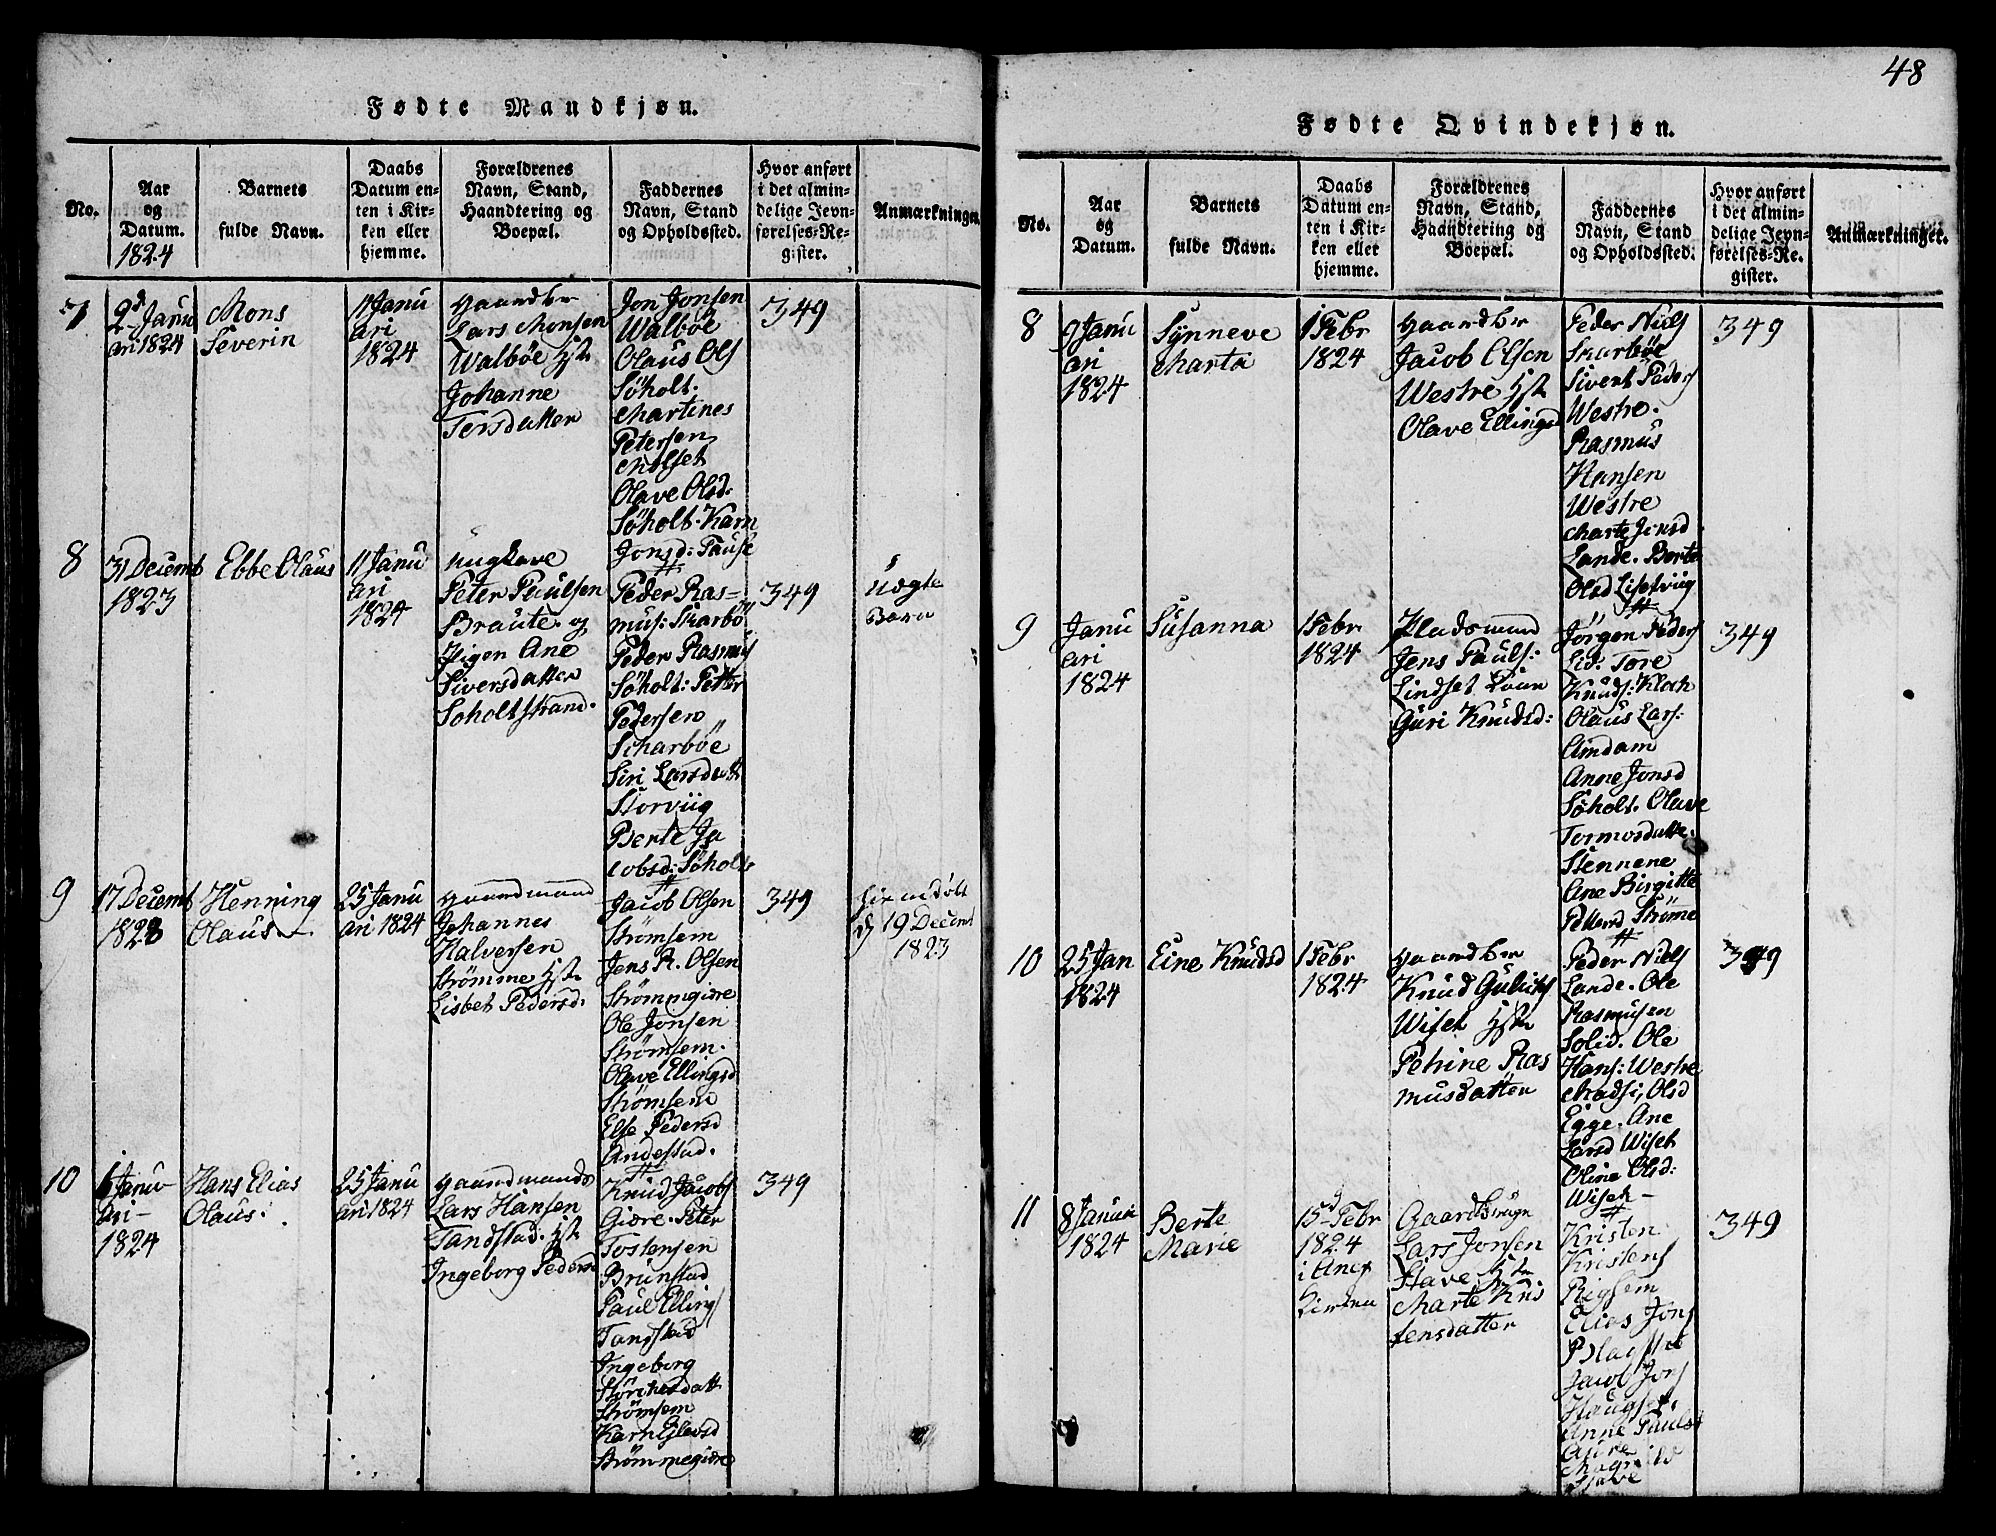 48
Fødte Mandkjøn.
No.
Aar
og
Datum.
1824
Barnets
fulde Navn.
Daabs
Datum en-
ten i Kir-
ken eller
hjemme.
Forældrenes
Navn, Stand,
Haandtering og
Boepæl.
Faddernes
Navn, Stand
og Opholdssted.
Hvor anført
i det almin-
delige Jevn-
førelses-Re-
gister.
Anmærkninger.
7
2d Janu
ari 1824
Mons
Severin
11 Janu
ari
1824
Gaardbr
Lars Monsen
Walbøe Hst
Johanne
Jon Jonsen
Walbøe
Olaus Ols
Søholt.
Martines
Petersen
Molset
Olave Olsd:
Søholt. Karn
Jonsd:
349
8
31 Decemb
1823
Ebbe Olaus
11 Janu
ari
1824
Ungkare
Peter Paulsen
Braute og
Pigen Ane
Siversdatter
Søholtstrand.
Peder Ras=
mus: Skarbø
Peder Rasmus
Søholt: Petter
Pedersen
Scharbøe
Siri Larsdatt
Storviig
Berte Ja
cobsd: Søholt
349
Uægte
Barn
9
17 Decemb
1823
Henning
Olaus
25 Janu
ari 1824
Gaardmand
Johannes
Halversen
Strømme Hst
Lisbet Pedersd:
Jacob Olsen
Strømsem
Jens R. Olsen
Strømmgiøre
Ole Jonsen
Strømsem.
Olave Ellingsd
Strømsem
Else Pedersd
Andestad.
349
hiemdøbt
d 19 Decemb
1823
10
6 Janu-
ari-
1824
Hans Elias
Olaus.
25 Janu
ari 1824
Gaardmands
Lars Hansen
Tandstad. Hst
Ingeborg Peders
Knud Jacobs
Giære. Peter
Tostensen
Brunstad
Paul Ellings
Tandstad
Ingeborg
Strømsem
Strømmegiære
349
Fødte Qvindekjøn.
No.
Aar
og
Datum.
Barnets
fulde Navn.
Daabs
Datum en-
ten i Kir-
ken eller
hjemme.
Forældrenes
Navn, Stand,
Haandtering og
Boepæl.
Faddernes
Navn, Stand
og Opholdssted.
Hvor anført
i det almin-
delige Jevn-
førelses-Re-
gister.
Anmærkninger.
8
9 Janu
ari
1824
Synneve
Marta
1 Febr
1824
Gaardbr
Jacob Olsen
Westre Hst
Olave Ellingsd
Peder Niels
Skarbøe
Sivert Peders
Westre.
Rasmus
Hansen
Westre
Marte Jensd
Lande. Berte
Olsd
349
9
Janu
ari
1824
Susanna
1 Febr
1824
Pladsmand
Jens Pauls:
Lindset
Guri Knudsd:
Jørgen Peders
Lid: Tore
Knuds: Kloch
Olaus Lars:
Amdam
Anne Jonsd
Søholt. Olave
Tormosdatte.
Stennene
Ane Birgitte
Pettersd Strøme
349
10
25 Jan
1824
Eine Knudsd
1 Febr
1824
Gaardbr
Knud Guliks
Wiset Hst
Petrine Ras
musdatter
Peder Niels
Lande. Ole
Rasmusen
Solid. Ole
Hans: Westre
Olsd
Egge. Ane
Larsd Wiset
Oline Olsd:
Wiset-
349
11
8 Janua
1824
Berte
Marie
15d Febr
1824
i Anex
Kirken
Gaardbrugr
Lars Jonsen
Stave Hst
Marte Kris
tensdatter
Kristen
Kristens
Rigsem
Elias Jons
Jacob Jons
Anne Pauls
Aure
Stave
349